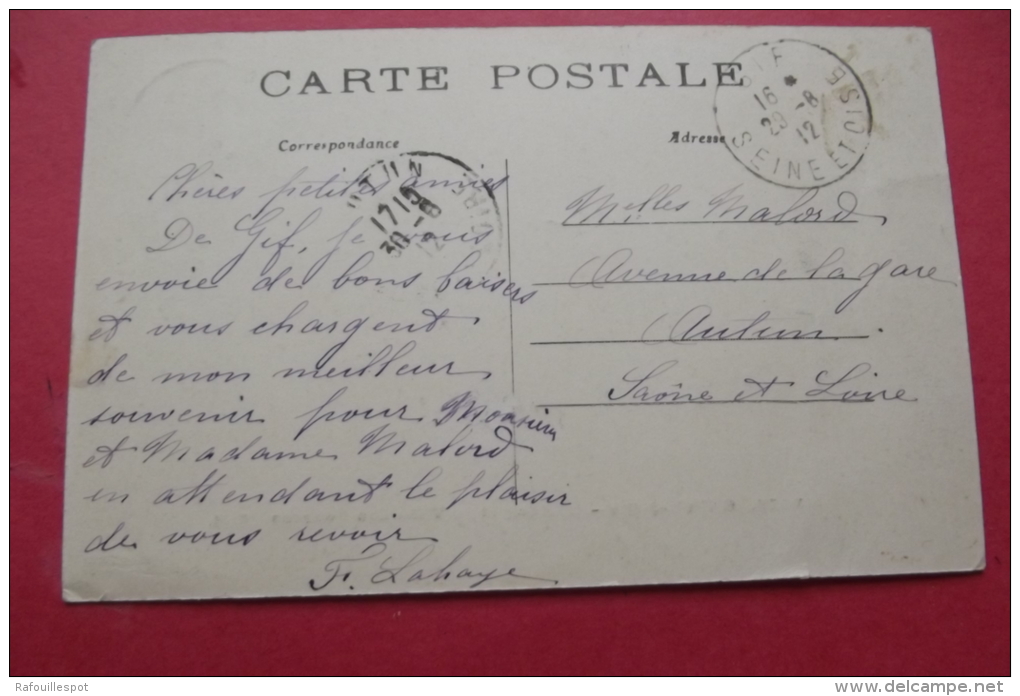 CARTE POSTALE
Correspondance
Adresse
GIF
SEINE ET OISE
16 *
29 -8
12
1715
30 -8
12
Chères petites amies
De Gif, je vous
envoie de bons baisers
et vous chargent
de mon meilleur
souvenir pour Monsieur
et Madame Malord
en attendant le plaisir
de vous revoir
F. Lahaye
Melles Malord
Avenue de la gare
Autun
Saône et Loire
Rafouillespot
delcampe.net